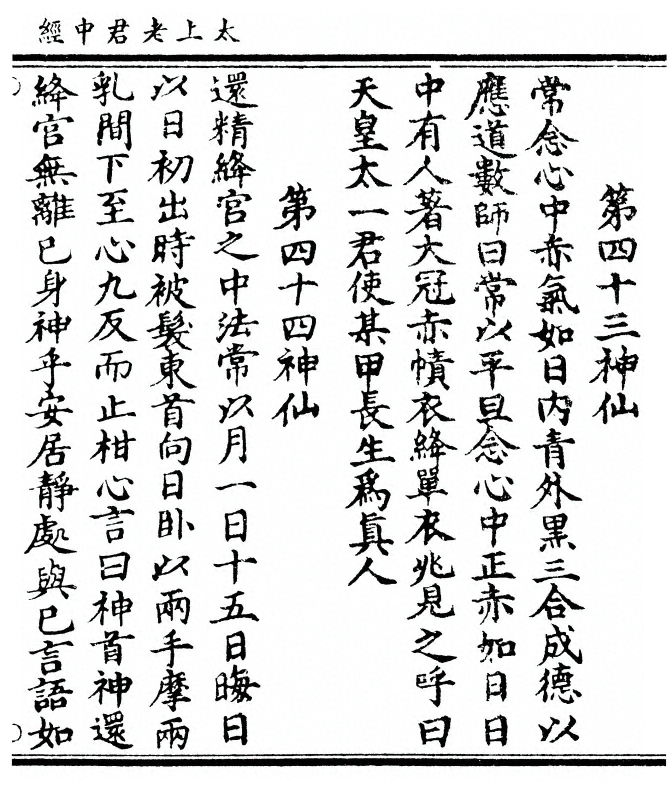 太上老君中經
第四十三神仙
常念心中赤氣如日内青外黒三合成德以
應道數師曰常以平旦念心中正赤如日日
中有人著大冠赤幘衣絳單衣兆見之呼曰
天皇太一君使某甲長生為真人
第四十四神仙
還精絳宮之中法常以月一日十五日晦日
以日初出時被髮東首向日卧以兩手摩兩
乳間下至心九反而止柑心言曰神首神還
絳宮無離已身神乎安居靜處與已言語如